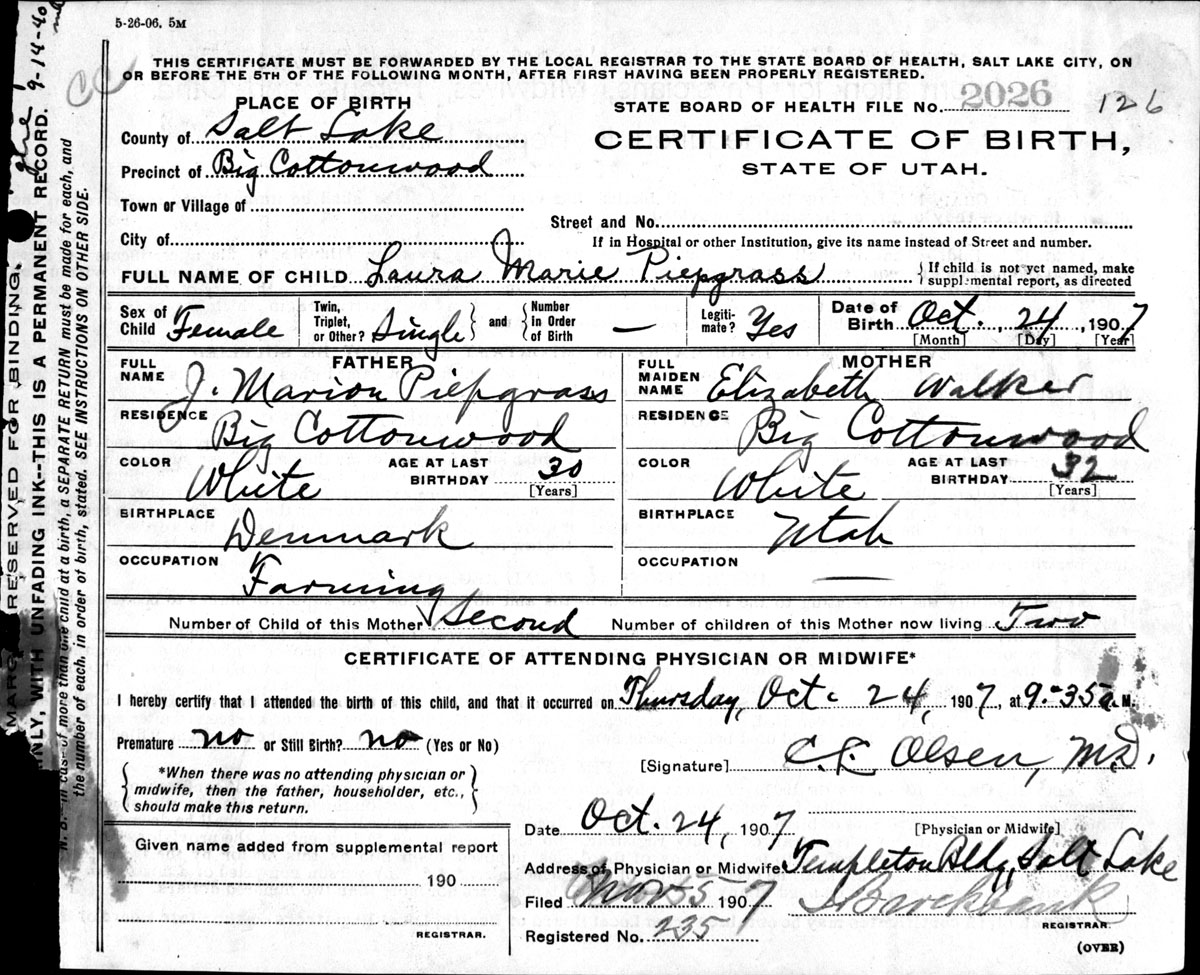 5-26-06. 5M
THIS CERTIFICATE MUST BE FORWARDED BY THE LOCAL REGISTRAR TO THE STATE BOARD OF HEALTH, SALT LAKE CITY, ON
OR BEFORE THE 5TH OF THE FOLLOWING MONTH, AFTER FIRST HAVING BEEN PROPERLY REGISTERED.
PLACE OF BIRTH
STATE BOARD OF HEALTH FILE NO. 2026 126
County of Salt Lake
CERTIFICATE OF BIRTH,
Precinct of Big Cottonwood
STATE OF UTAH.
Town or Village of
Street and No.
City of
If in Hospital or other Institution, give its name instead of Street and number.
FULL NAME OF CHILD Laura Marie Piepgrass
{If child is not yet named, make
supplemental report, as directed
Sex of Child Female
Twin, Triplet, or Other? Single} and {Number in Order of Birth —
Legiti-mate? Yes
Date of Birth Oct., 24, 1907
[Month] [Day] [Year]
FATHER
FULL NAME J. Marion Piepgrass
RESIDENCE Big Cottonwood
COLOR White AGE AT LAST BIRTHDAY 30
[Years]
BIRTHPLACE Denmark
OCCUPATION Farming
MOTHER
FULL MAIDEN NAME Elizabeth Walker
RESIDENCE Big Cottonwood
COLOR White AGE AT LAST BIRTHDAY 32
[Years]
BIRTHPLACE Utah
OCCUPATION —
Number of Child of this Mother Second Number of children of this Mother now living Two
CERTIFICATE OF ATTENDING PHYSICIAN OR MIDWIFE*
I hereby certify that I attended the birth of this child, and that it occurred on Thursday, Oct. 24, 1907, at 9-35 a. M.
Premature no or Still Birth? no (Yes or No)
[Signature] C. L. Olsen, M.D.
{*When there was no attending physician or
midwife, then the father, householder, etc.,
should make this return.}
[Physician or Midwife]
Date Oct. 24, 1907
Address of Physician or Midwife Templeton Bldg, Salt Lake
Filed Nov 5 1907
Brockbank
REGISTRAR.
Registered No. 235
(OVER)
Given name added from supplemental report
190
REGISTRAR.
RESERVED FOR BINDING.
WITH UNFADING INK--THIS IS A PERMANENT RECORD. 9-14-40
in case of more than one child at a birth, a SEPARATE RETURN must be made for each, and
the number of each, in order of birth, stated. SEE INSTRUCTIONS ON OTHER SIDE.